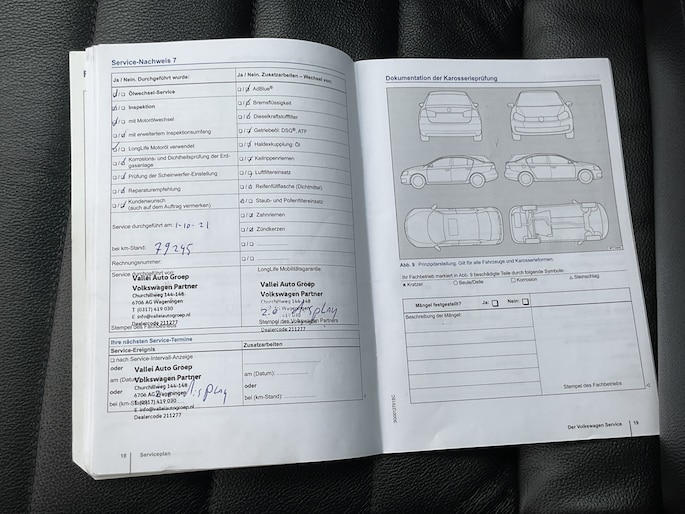 Service-Nachweis 7
Ja / Nein. Durchgeführt wurde:
Ölwechsel-Service
Inspektion
mit Motorölwechsel
mit erweitertem Inspektionsumfang
LongLife Motoröl verwendet
Korrosions- und Dichtheitsprüfung der Erd-
gasanlage
Prüfung der Scheinwerfer-Einstellung
Reparaturempfehlung
Kundenwunsch
(auch auf dem Auftrag vermerken)
Service durchgeführt am: 1-10-21
bei km-Stand: 79245
Rechnungsnummer:
Service durchgeführt von:
Vallei Auto Groep
Volkswagen Partner
Churchillweg 144-148
6706 AG Wageningen
T (0317) 419 030
E info@valleiautogroep.nl
Dealercode 211277
Stempel des Fachbetriebs
Ja / Nein. Zusatzarbeiten – Wechsel von:
AdBlue®
Bremsflüssigkeit
Dieselkraftstofffilter
Getriebeöl: DSG®, ATF
Haldexkupplung: Öl
Keilrippenriemen
Luftfiltereinsatz
Reifenfüllflasche (Dichtmittel)
Staub- und Pollenfiltereinsatz
Zahnriemen
Zündkerzen
LongLife Mobilitätsgarantie:
Vallei Auto Groep
Volkswagen Partner
Churchillweg 144-148
Wageningen
display
419 030
Stempel des Volkswagen Partners
Dealercode 211277
Ihre nächsten Service-Termine
Service-Ereignis
nach Service-Intervall-Anzeige
oder
am (Datum):
oder
bei (km-Stand):
Vallei Auto Groep
Volkswagen Partner
Churchillweg 144-148
6706 AG Wageningen
display
T (0317) 419 030
E info@valleiautogroep.nl
Dealercode 211277
Zusatzarbeiten
am (Datum):
oder
bei (km-Stand):
18 Serviceplan
Dokumentation der Karosserieprüfung
Abb. 9 Prinzipdarstellung. Gilt für alle Fahrzeuge und Karosserieformen.
Ihr Fachbetrieb markiert in Abb. 9 beschädigte Teile durch folgende Symbole:
Kratzer
Beule/Delle
Korrosion
Steinschlag
Mängel festgestellt? Ja: Nein:
Beschreibung der Mängel:
Stempel des Fachbetriebs
Der Volkswagen Service 19